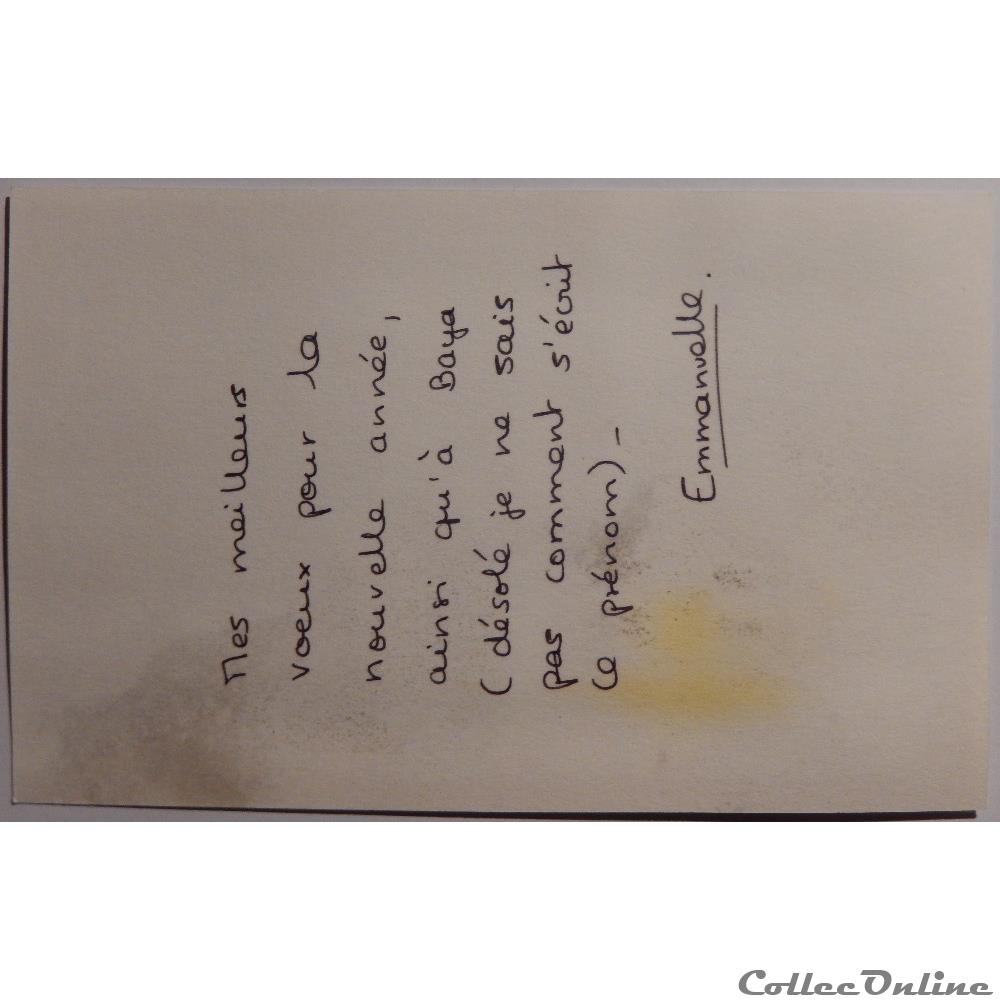 Mes meilleurs
voeux pour la
nouvelle année,
ainsi qu'à Baya
(désolé je ne sais
pas comment s'écrit
ce prénom) -
Emmanuelle.
CollecOnline